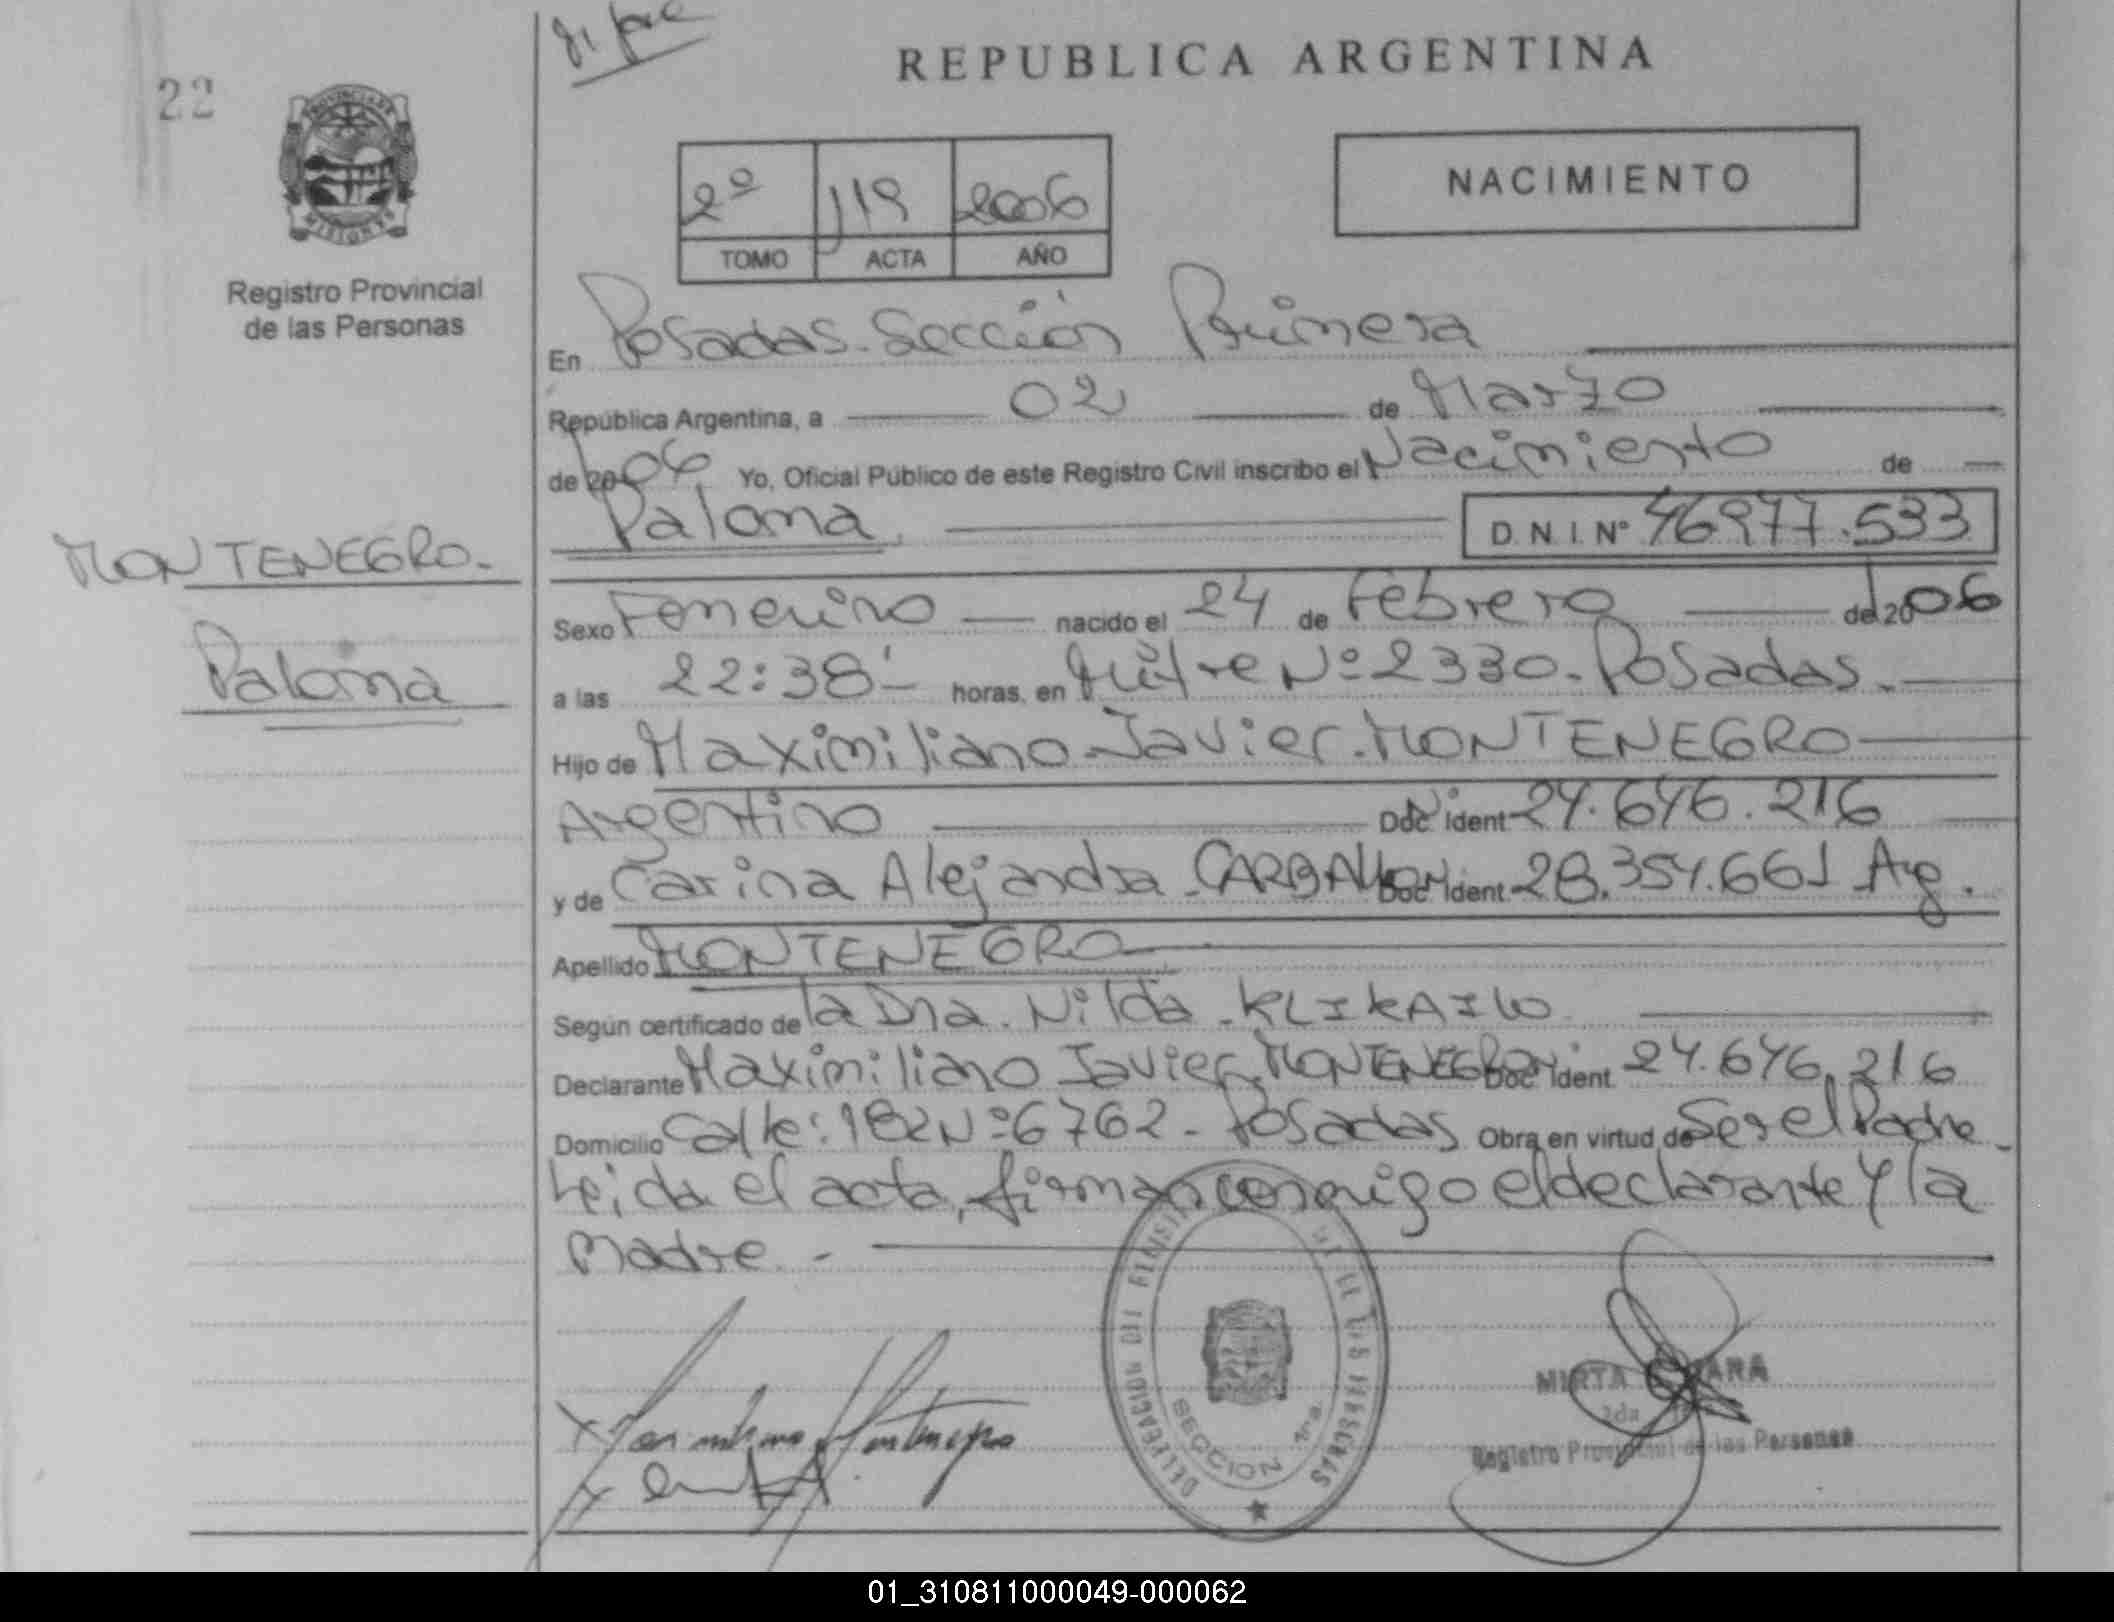 22
REPUBLICA ARGENTINA
PROVINCIA DE
MISIONES
Registro Provincial
de las Personas
NACIMIENTO
2º 119 2006
TOMO ACTA AÑO
En Posadas. Sección Primera
República Argentina, a 02 de Marzo
de 2006, Yo, Oficial Público de este Registro Civil inscribo el Nacimiento de
Paloma, D.N.I. Nº 46977.533
MONTENEGRO.
Paloma
Sexo Femenino nacido el 24 de Febrero de 2006
a las 22:38' horas, en Mitre Nº 2330. Posadas.
Hijo de Maximiliano Javier. MONTENEGRO
Argentino Doc. Ident 24.646.216
y de Carina Alejandra. CARBALLO Doc Ident. 28.354.661 Arg.
Apellido MONTENEGRO
Según certificado de la Dra. Nilda. KLIKAILO
Declarante Maximiliano Javier. MONTENEGRO Doc Ident 24.646.216
Domicilio Calle: 182 Nº 6762 - Posadas Obra en virtud de Ser el Padre.
Leida el acta, firman conmigo el declarante y la
Madre. -
DELEGACION DEL REGISTRO DE LAS PERSONAS
SECCION 1ra.
MIRTA
Registro Provincial de las Personas
01_310811000049-000062